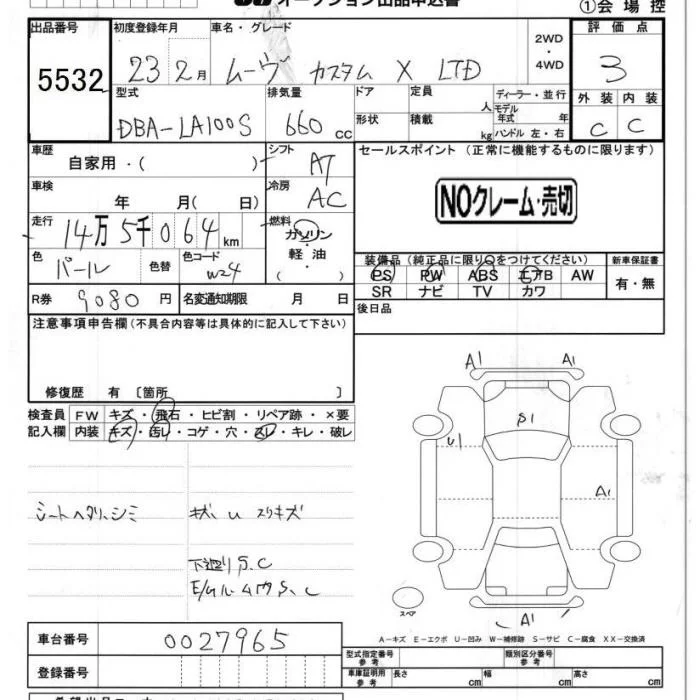 オークション出品申込書
①会場控
出品番号 初度登録年月 車名・グレード 2WD・4WD 評価点
5532 23 2月 ムーヴ カスタム X LTD 3
型式 排気量 ドア 定員 人 ディーラー・並行 外装 内装
モデル年式 年
DBA-LA100S 660 cc 形状 積載 kg ハンドル 左・右 C C
車歴 シフト セールスポイント (正常に機能するものに限ります)
自家用・( ) AT
車検 冷房 NOクレーム・売切
年 月( 日) AC
走行 燃料
14万5千064km ガソリン・軽油・( )
装備品(純正品に限り○をつけてください) 新車保証書
色 色替 色コード PS PW ABS エアB AW 有・無
パール W24 SR ナビ TV カワ
R券 9080 円 名変通知期限 月 日 後日品
注意事項申告欄(不具合内容等は具体的に記入して下さい)
修復歴 有 〔箇所 〕
検査員 FW キズ・飛石・ヒビ割・リペア跡・×要
記入欄 内装 キズ・汚レ・コゲ・穴・スレ・キレ・破レ
A1 A1
S1
U1
A1
シートヘタリ、シミ キズ U スリキズ
下廻りS、C
E/ルーム内S、C
スペア A1
A-キズ E-エクボ U-凹み W-補修跡 S-サビ C-腐食 XX-交換済
車台番号 0027965
型式指定番号 参考 類別区分番号 参考
登録番号 車庫証明用 参考 長さ cm 幅 cm 高さ cm